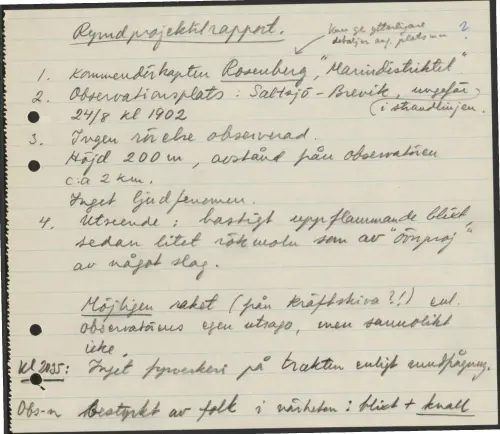 Rymdprojektilrapport.
Kan ge ytterligare
detaljer ang. platsen ?
1. Kommendörkapten Rosenberg, "Marindistriktet"
2. Observationsplats: Saltsjö-Brevik, ungefär
(i strandlinjen.
24/8 kl 1902
3. Ingen rörelse observerad.
Höjd 200 m, avstånd från observatören
c:a 2 km.
Inget ljudfenomen.
4. Utseende: hastigt uppflammande blixt,
sedan litet rökmoln som av "övnproj"
av något slag.
Möjligen raket (från kräftskiva?!) enl.
observatörens egen utsago, men sannolikt
icke.
Kl 2035: Inget fyrverkeri på trakten enligt omfrågning.
Obs-n bestyrkt av folk i närheten: blixt + knall